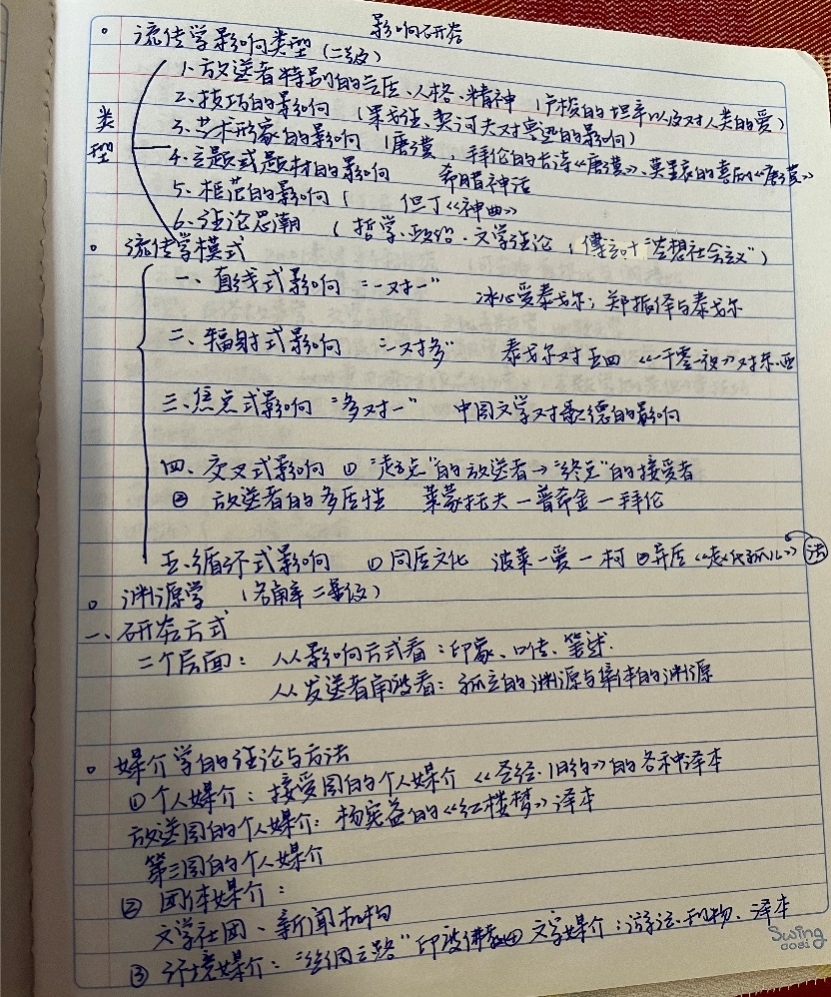 影响研究
。流传学影响类型(二级)
类型
1.放送者特别的气质、人格、精神(卢梭的坦率以及对人类的爱)
2.技巧的影响(果戈里、契诃夫对鲁迅的影响)
3.艺术形象的影响(唐璜,拜伦的长诗《唐璜》、莫里哀的喜剧《唐璜》)
4.主题或题材的影响 希腊神话
5.框范的影响( 但丁《神曲》
6.理论思潮(哲学、政治、文学理论(傅立叶"空想社会主义")
。流传学模式
一、直线式影响 "一对一" 冰心受泰戈尔;郑振铎与泰戈尔
二、辐射式影响 "一对多" 泰戈尔对五四 《一千零一夜》对东西
三、焦点式影响 "多对一" 中国文学对歌德的影响
四、交叉式影响 ① "起点"的放送者→"终点"的接受者
② 放送者的多质性 莱蒙托夫—普希金—拜伦
五、循环式影响 ①同质文化 波莱—爱—柯 ②异质《赵氏孤儿》法
。渊源学(名解二级)
一、研究方式
二个层面:从影响方式看:印象、口传、笔述.
从发送者角度看:孤立的渊源与集体的渊源
。媒介学的理论与方法
①个人媒介:接受国的个人媒介《圣经·旧约》的各种译本
放送国的个人媒介:杨宪益的《红楼梦》译本
第三国的个人媒介
② 团体媒介:
文学社团、新闻机构
③ 环境媒介:"丝绸之路"印度佛教 ④ 文字媒介:游记、刊物、译本
Swing
cosi